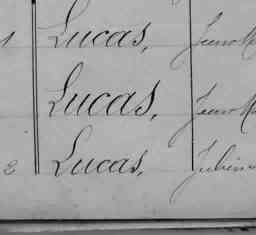 Lucas, Jean M
Lucas, Jean M
Lucas, Julien